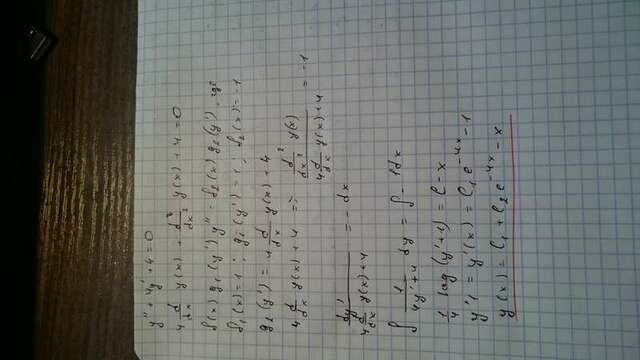 y'' + 4y' + 4 = 0
4 d/dx y(x) + d²/dx² y(x) + 4 = 0
f₁(x) g₁(y') y'' = f₂(x) g₂(y'),
f₁(x) = 1; g₁(y') = 1; f₂(x) = -1
g₂(y') = 4 d/dx y(x) + 4
4 d/dx y(x) + 4 => d²/dx² y(x) / 4 d/dx y(x) + 4 = -1
dy' / 4 d/dx y(x) + 4 = -dx
∫ 1/4y'+4 dy = ∫ -1dx
1/4 log(y'+1) = C - x
y'1 = y'(x) = C₁ e^-4x - 1
y(x) = C₁ + C₂ e^-4x - x